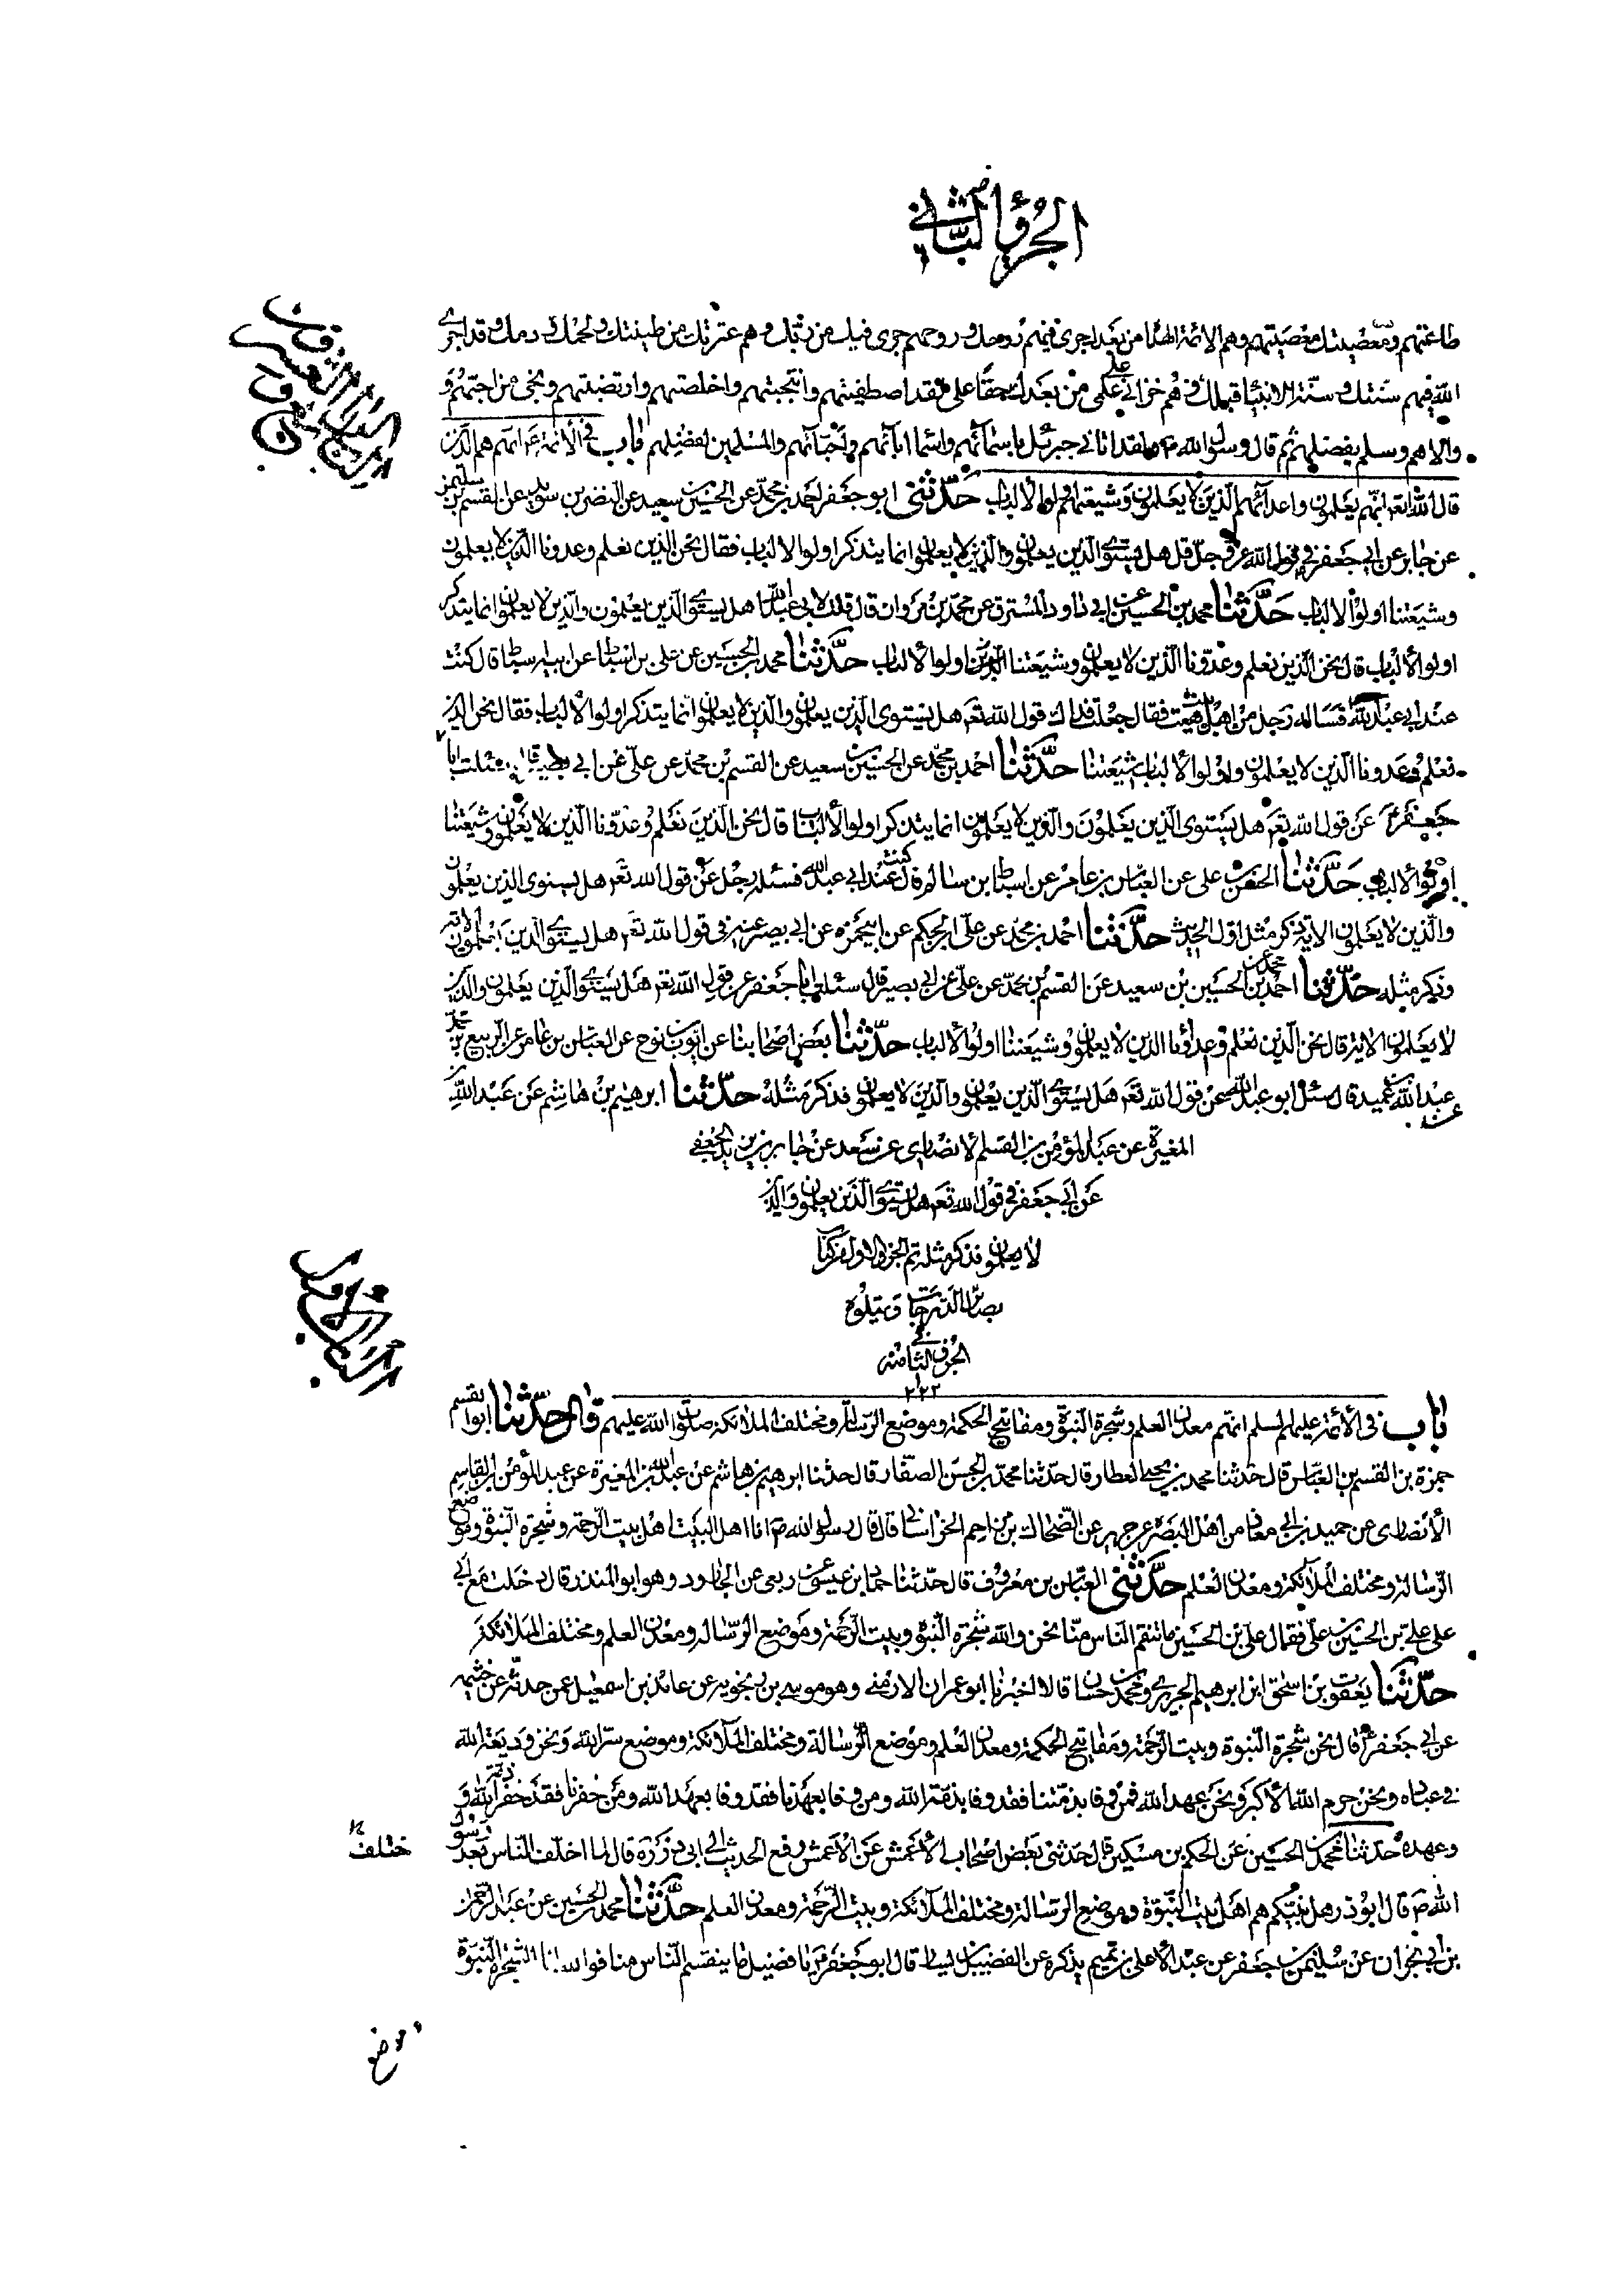 الجزؤ الثاني
طاعتهم ومعصيتك معصيتهم وهم الائمة الهداة من بعدك جرى فيهم روحك وروحهم جرى فيك من ربك وهم عترتك من طينتك ولحمك ودمك وقد اجرى
الله فيهم سنتك وسنة الانبياء قبلك وهم خزاني على علمى من بعدك حقا على لقد اصطفيتهم وانتجبتهم واخلصتهم وارتضيتهم ونجى من احبهم و
والاهم وسلم بفضلهم ثم قال رسول الله ص ولقد اتانى جبرئيل باسمائهم واسماء ابائهم واحبائهم والمسلمين لفضلهم باب فى الأئمة ع انهم هم الذين
قال الله تعم انهم يعلمون واعدائهم الذين لا يعلمون وشيعتهم اولوا الالباب حدثنى ابو جعفر احمد بن محمد عن الحسين بن سعيد عن النضر بن سويد عن القسم بن سليمن
عن جابر عن ابى جعفر فى قول الله عز وجل قل هل يستوى الذين يعلمون والذين لا يعلمون انما يتذكر اولوا الالباب فقال نحن الذين نعلم وعدونا الذين لا يعلمون
وشيعتنا اولوا الالباب حدثنا محمد بن الحسين عن ابى داود المسترق عن محمد بن مروان قال قلت لابى عبد الله هل يستوى الذين يعلمون والذين لا يعلمون انما يتذكر
اولوا الالباب قال نحن الذين نعلم وعدونا الذين لا يعلمون وشيعتنا اولوا الالباب حدثنا محمد بن الحسين عن على بن اسباط عن ابيه اسباط قال كنت
عند ابى عبد الله فسأله رجل من اهل هيت فقال جعلت فداك قول الله تعم هل يستوى الذين يعلمون والذين لا يعلمون انما يتذكر اولوا الالباب فقال نحن الذين
نعلم وعدونا الذين لا يعلمون واولوا الالباب شيعتنا حدثنا احمد بن محمد عن الحسين بن سعيد عن القسم بن محمد عن على عن ابى بصير قال سئلت ابا
جعفر ع عن قول الله تعم هل يستوى الذين يعلمون والذين لا يعلمون انما يتذكر اولوا الالباب قال نحن الذين نعلم وعدونا الذين لا يعلمون وشيعتنا
اولوا الالباب حدثنا الحسن بن على عن العباس بن عامر عن اسباط بن سالم قال كنت عند ابى عبد الله فسئله رجل عن قول الله تعم هل يستوى الذين يعلمون
والذين لا يعلمون الاية ذكر مثل اول الحديث حدثنا احمد بن محمد عن على بن الحكم عن ابى حمزه عن ابى بصير عنه فى قول الله تعم هل يستوى الذين يعلمون الاية
وذكر مثله حدثنا احمد بن محمد عن الحسين بن سعيد عن القسم بن محمد عن على عن ابى بصير قال سئلت ابا جعفر عن قول الله تعم هل يستوى الذين يعلمون والذين
لا يعلمون الاية قال نحن الذين نعلم وعدونا الذين لا يعلمون وشيعتنا اولوا الالباب حدثنا بعض اصحابنا عن ايوب بن نوح عن العباس بن عامر عن الربيع بن محمد
عن عبد الله بن عميد قال سئل ابو عبد الله عن قول الله تعم هل يستوى الذين يعلمون والذين لا يعلمون فذكر مثله حدثنا ابرهيم بن هاشم عن عبد الله بن
المغيرة عن عبد المؤمن بن القسم الانصارى عن سعد عن جابر بن يزيد الجعفى
عن ابى جعفر فى قول الله تعم هل يستوى الذين يعلمون والذين
لا يعلمون فذكر مثله تم الجزؤ الاول من كتاب
بصائر الدرجات ويتلوه
الجزؤ الثانى منه
باب فى الأئمة عليهم السلم انهم معدن العلم وشجرة النبوة ومفاتيح الحكمة وموضع الرسالة ومختلف الملائكة صلوات الله عليهم قال حدثنا ابوا لقسم
حمزة بن القسم بن العباس قال حدثنا محمد بن يحيى العطار قال حدثنا محمد بن الحسن الصفار قال حدثنا ابرهيم بن هاشم عن عبد الله بن المغيرة عن عبد المؤمن بن القاسم
الأنصارى عن حميد بن ابى معاذ من اهل البصره عن جرير عن الضحاك بن مزاحم الخراسانى قال قال رسول الله ص انا اهل البيت اهل بيت الرحمة وشجرة النبوة وموضع
الرسالة ومختلف الملائكة ومعدن العلم حدثنى العباس بن معروف قال حدثنا حماد بن عيسى عن ربعى عن الجارود وهو ابو المنذر قال دخلت مع ابى
على على بن الحسين بن على فقال على بن الحسين ما تنقم الناس منا نحن والله شجرة النبوة وبيت الرحمة وموضع الرسالة ومعدن العلم ومختلف الملائكة
حدثنا يعقوب بن اسحق ابن ابرهيم الجريرى ومحمد بن حسان قالا اخبرنا ابو عمران الارمنى وهو موسى بن زنجويه عن عائذ بن اسمعيل عمن حدثه عن خثيمه
عن ابى جعفر ع قال نحن شجرة النبوة وبيت الرحمة ومفاتيح الحكمة ومعدن العلم وموضع الرسالة ومختلف الملائكة وموضع سر الله ونحن وديعة الله
فى عباده ونحن حرم الله الأكبر ونحن عهد الله فمن وفا بذمتنا فقد وفا بذمة الله ومن وفا بعهدنا فقد وفا بعهد الله ومن خفرنا فقد خفر ذمة الله و
وعهده حدثنا محمد بن الحسين عن الحكم بن مسكين قال حدثنى بعض اصحاب الأعمش عن الأعمش رفع الحديث الى ابى ذر قال لما اختلف الناس بعد رسول
ختلف
الله ص قال ابوذر هل بيت نبيكم هم اهل بيت النبوة وموضع الرسالة ومختلف الملائكة وبيت الرحمة ومعدن العلم حدثنا محمد بن الحسين عن عبد الرحمن
بن ابى نجران عن سليمن بن جعفر عن عبد الأعلى بن تميم يذكره عن الفضيل بن يسار قال ابو جعفر ع يا فضيل ما ينقم الناس منا فوالله انا الشجرة النبوة
وموضع